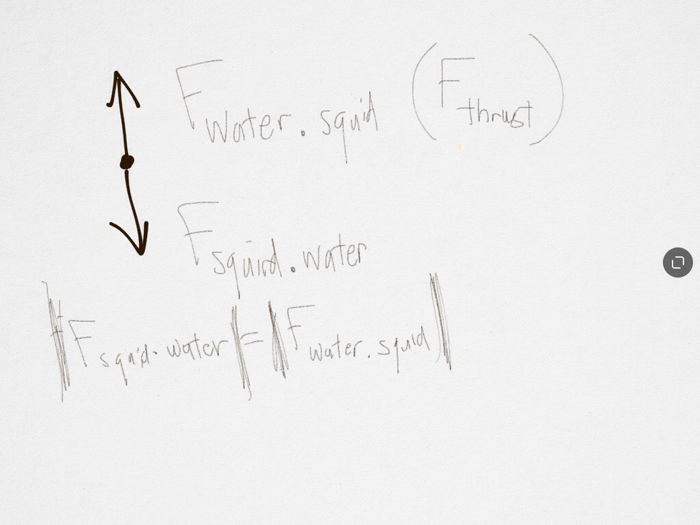 F water. squid (F thrust)
F squird. water
|F squid. water| = |F water. squid|